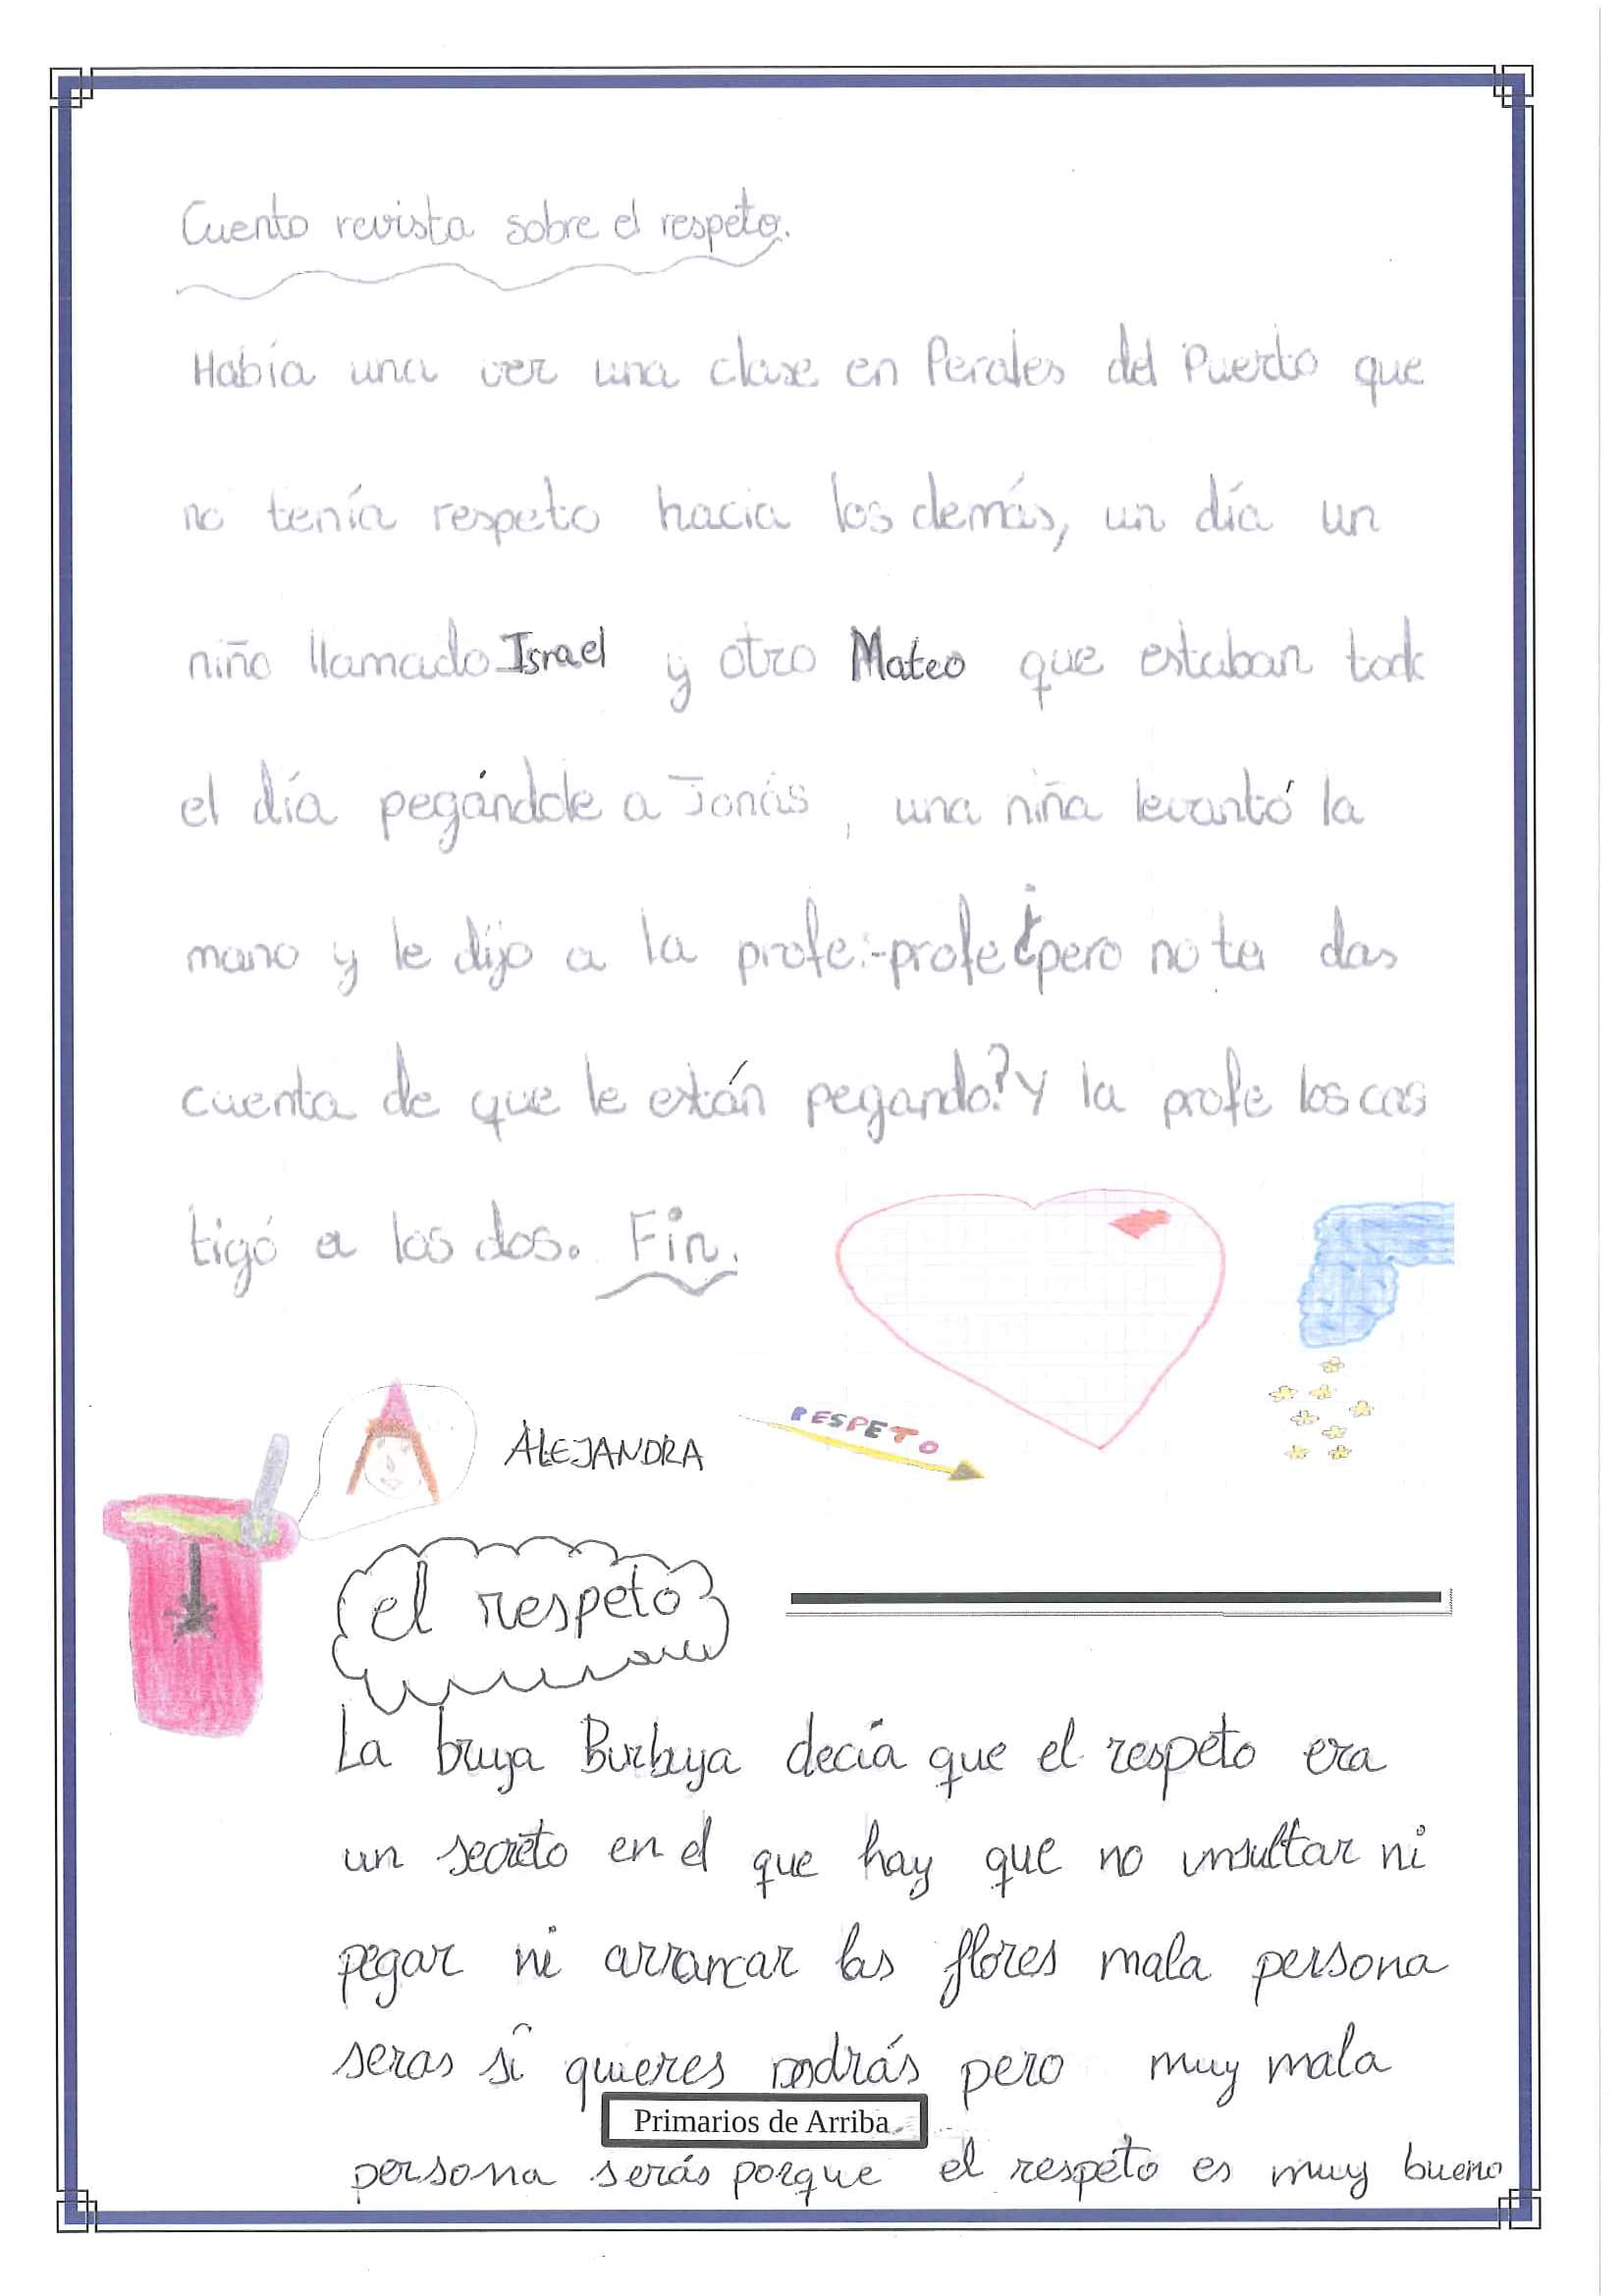 Cuento revista sobre el respeto.
Había una vez una clase en Perales del Puerto que
no tenía respeto hacia los demás, un día un
niño llamado Israel y otro Mateo que estaban todo
el día pegándole a Jonás, una niña levantó la
mano y le dijo a la profe:-profe ¿pero no te das
cuenta de que le están pegando? Y la profe los cas
tigó a los dos. Fin.
RESPETO
ALEJANDRA
el respeto
La bruja Burbuya decía que el respeto era
un secreto en el que hay que no insultar ni
pegar ni arrancar las flores mala persona
seras si quieres podrás pero muy mala
Primarios de Arriba
persona serás porque el respeto es muy bueno